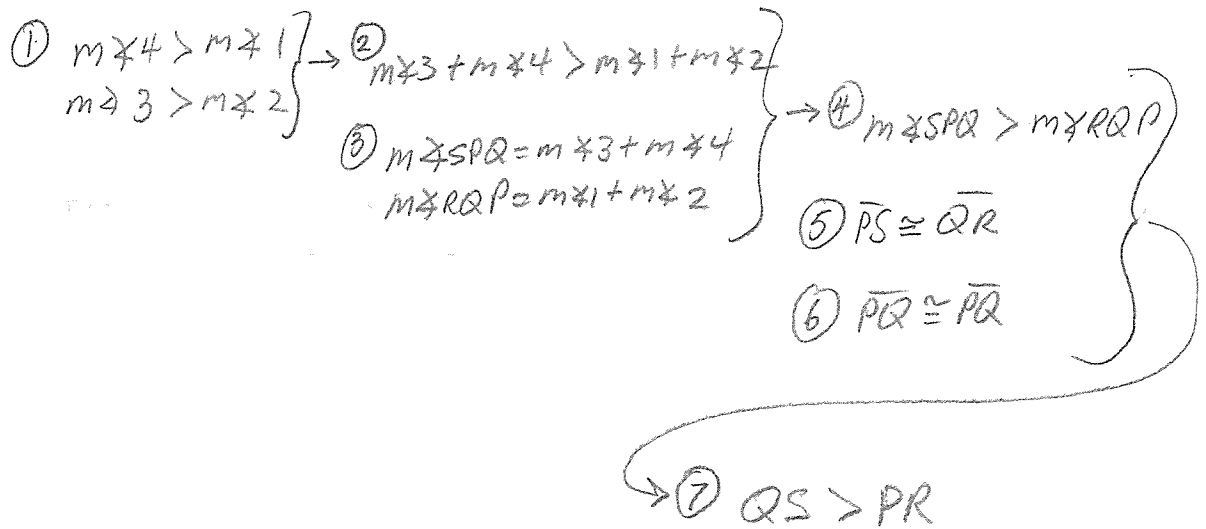 ① m∡4 > m∡1
m∡3 > m∡2
→ ② m∡3 + m∡4 > m∡1 + m∡2
③ m∡SPQ = m∡3 + m∡4
m∡RQP = m∡1 + m∡2
→ ④ m∡SPQ > m∡RQP
⑤ P̅S̅ ≅ Q̅R̅
⑥ P̅Q̅ ≅ P̅Q̅
→ ⑦ QS > PR